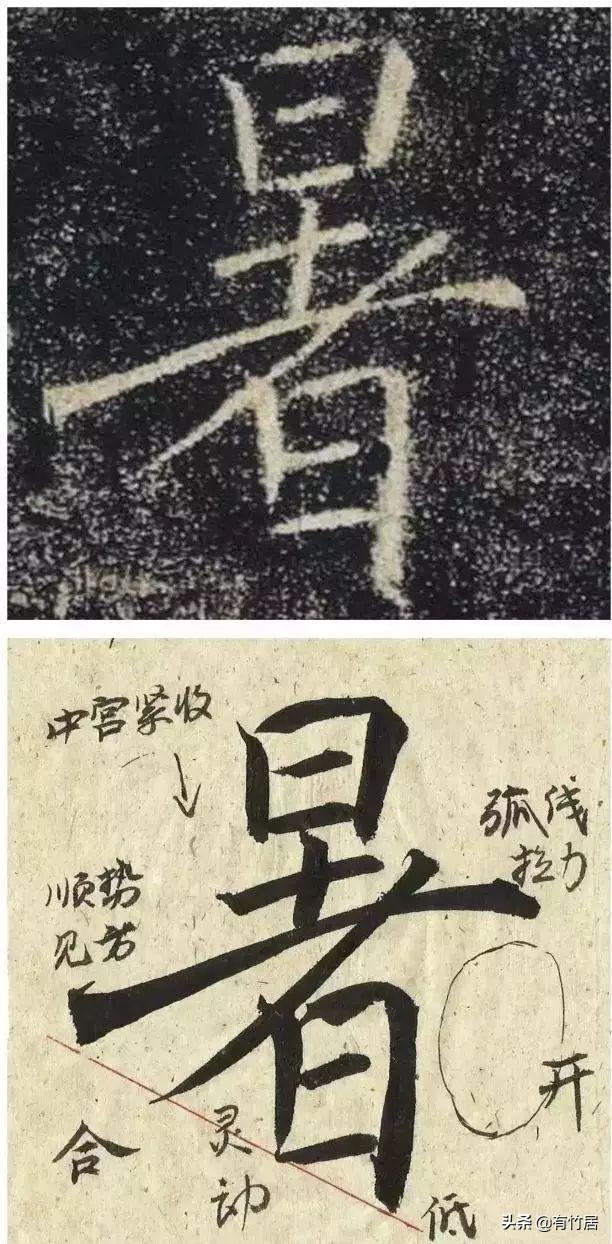 暑
中宫紧收
暑
弧线
拉力
顺势
见方
开
合
灵
动
低
头条 @有竹居